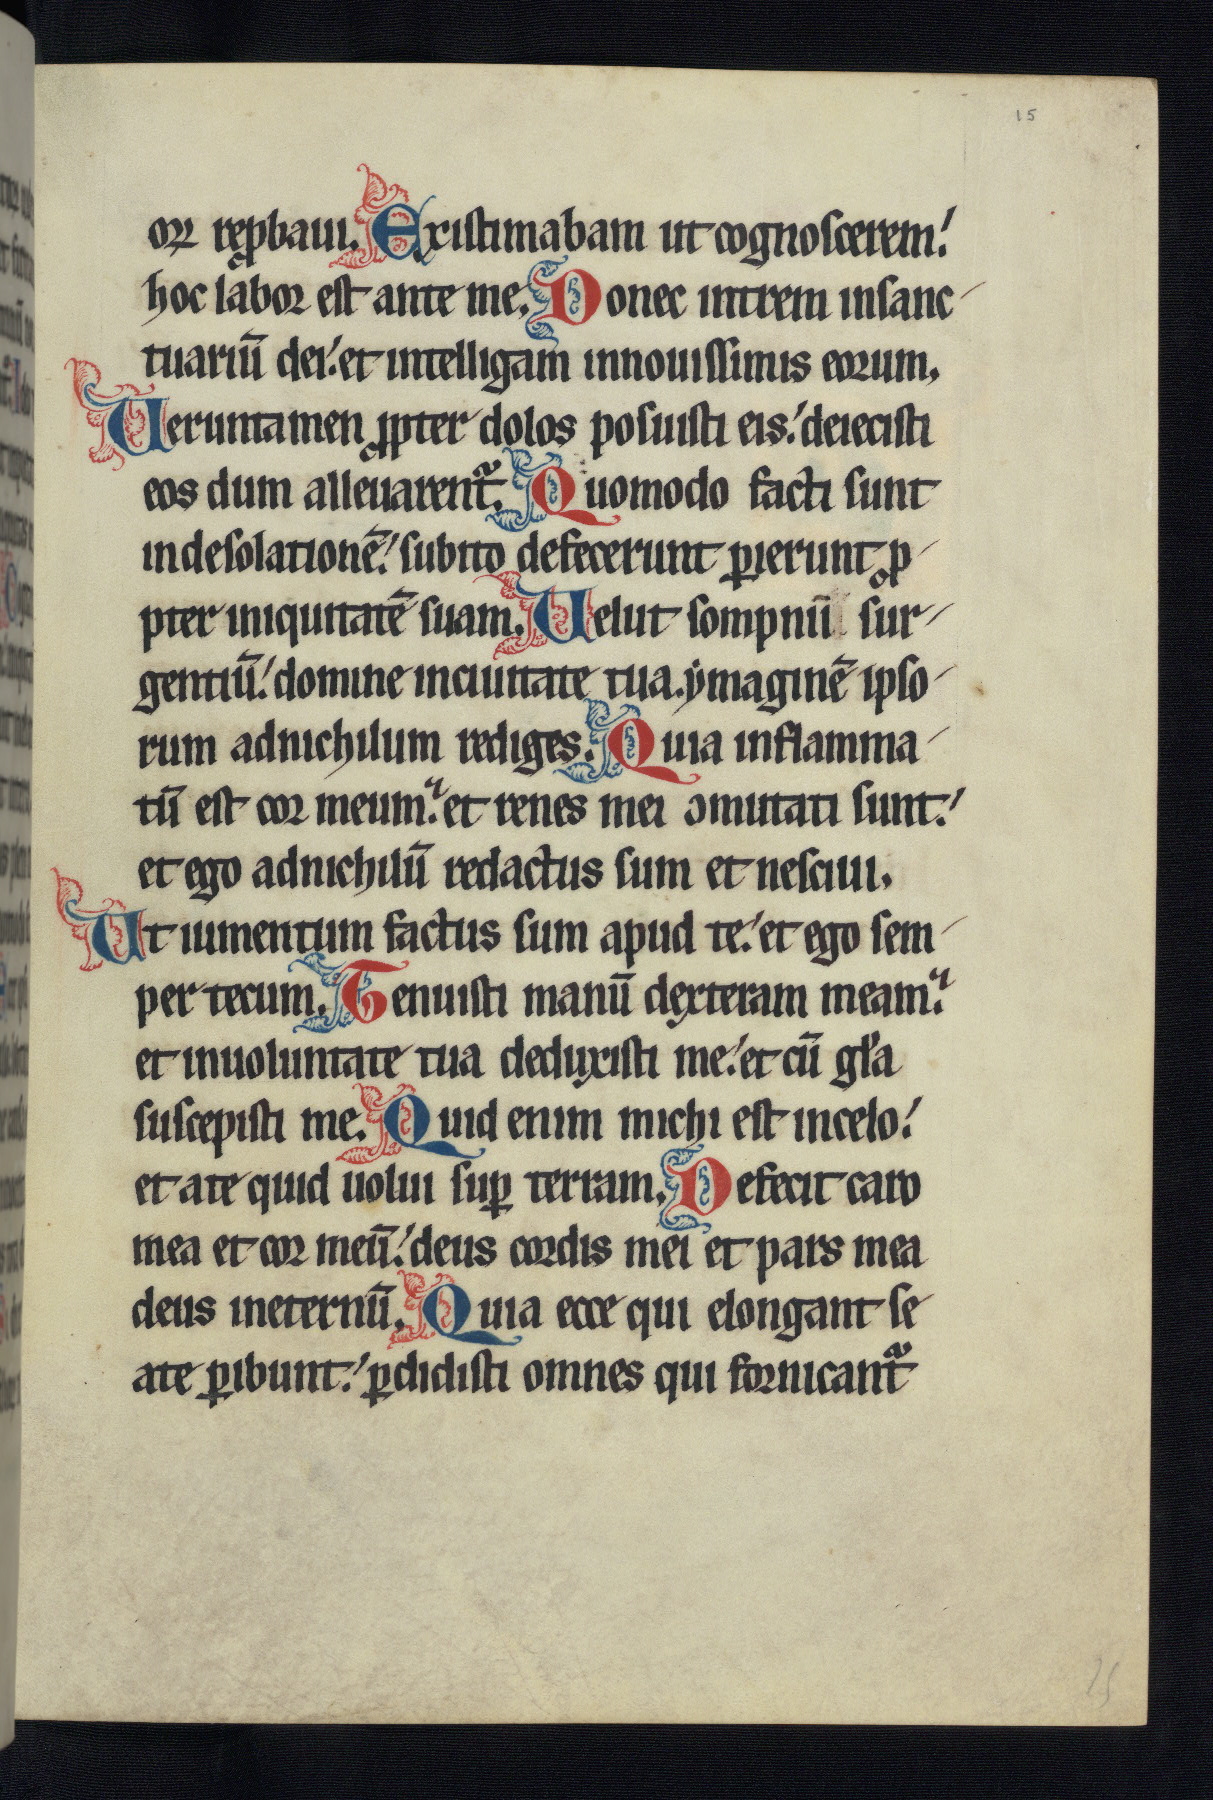 15
orum reꝓbaui. Existimabam ut cognoscerem:
hoc labor est ante me. Donec intrem in sanc
tuariū dei: et intelligam in nouissimis eorum.
Ueruntamen ꝓpter dolos posuisti eis: deiecisti
eos dum alleuarent᷑. Quomodo facti sunt
in desolationē: subito defecerunt ꝑierunt ꝓ
pter iniquitatē suam. Uelut sompniū sur
gentiū: domine in ciuitate tua ymaginē ipso
rum ad nichilum rediges. Quia inflamma
tū est cor meum: et renes mei ꝯmutati sunt:
et ego ad nichilū redactus sum et nesciui.
Ut iumentum factus sum apud te: et ego sem
per tecum. Tenuisti manū dexteram meam:
et in uoluntate tua deduxisti me: et cū gl̓a
suscepisti me. Quid enim michi est in celo:
et a te quid uolui suꝑ terram. Defecit caro
mea et cor meū: deus cordis mei et pars mea
deus in eternū. Quia ecce qui elongant se
a te ꝑibunt: ꝑdidisti omnes qui fornicant᷑